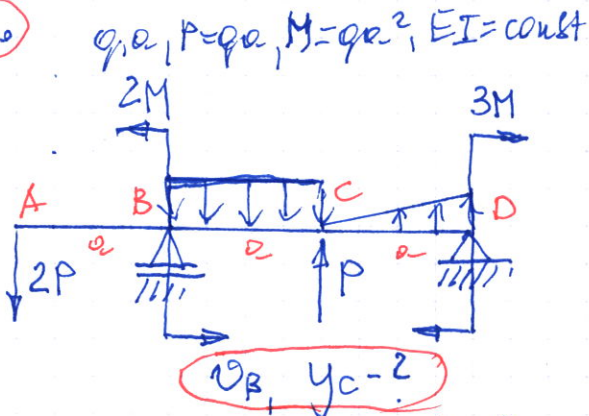 q, a, P=qa, M=qa², EI=const
2M
3M
A
B
C
D
a
a
a
2P
P
υ_B, y_C - ?